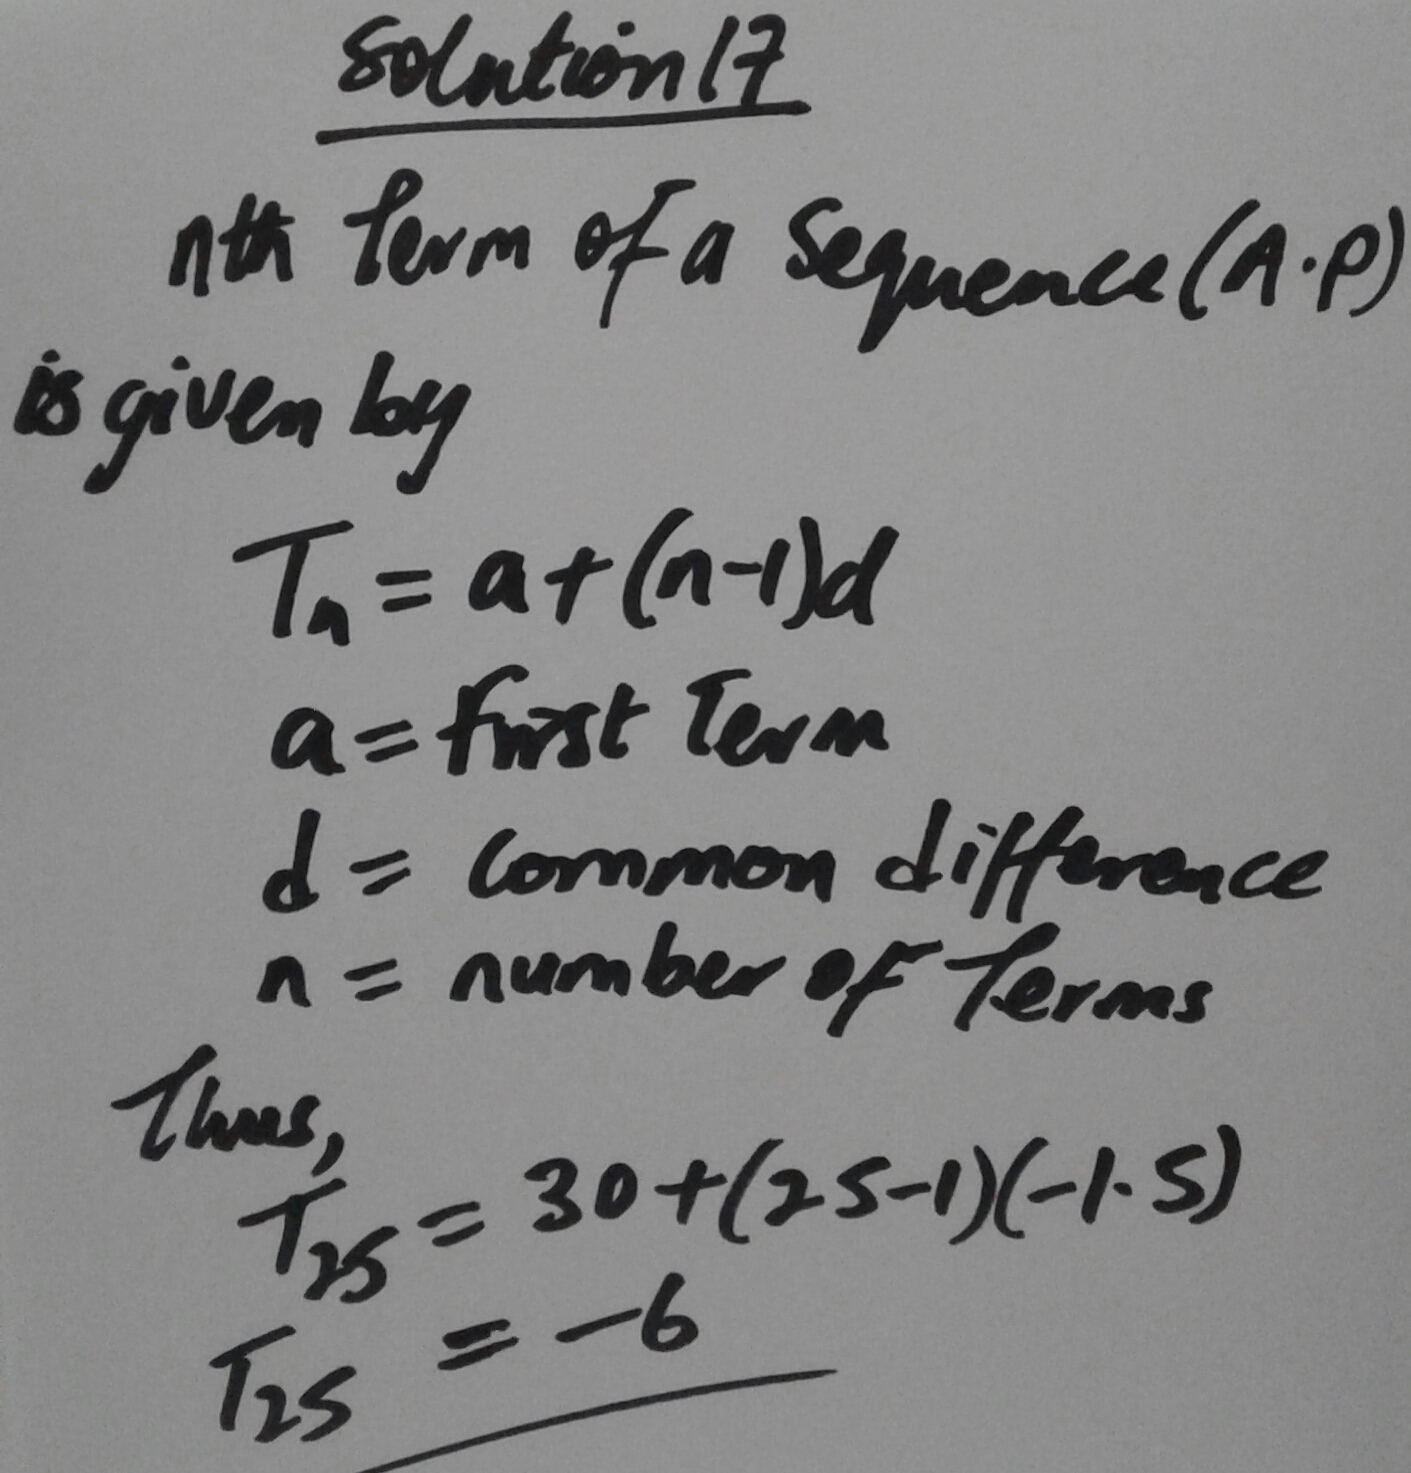 Solution 17
nth Term of a Sequence (A.P)
is given by
Tn = a + (n-1)d
a = first Term
d = Common difference
n = number of Terms
Thus,
T25 = 30 + (25-1)(-1.5)
T25 = -6